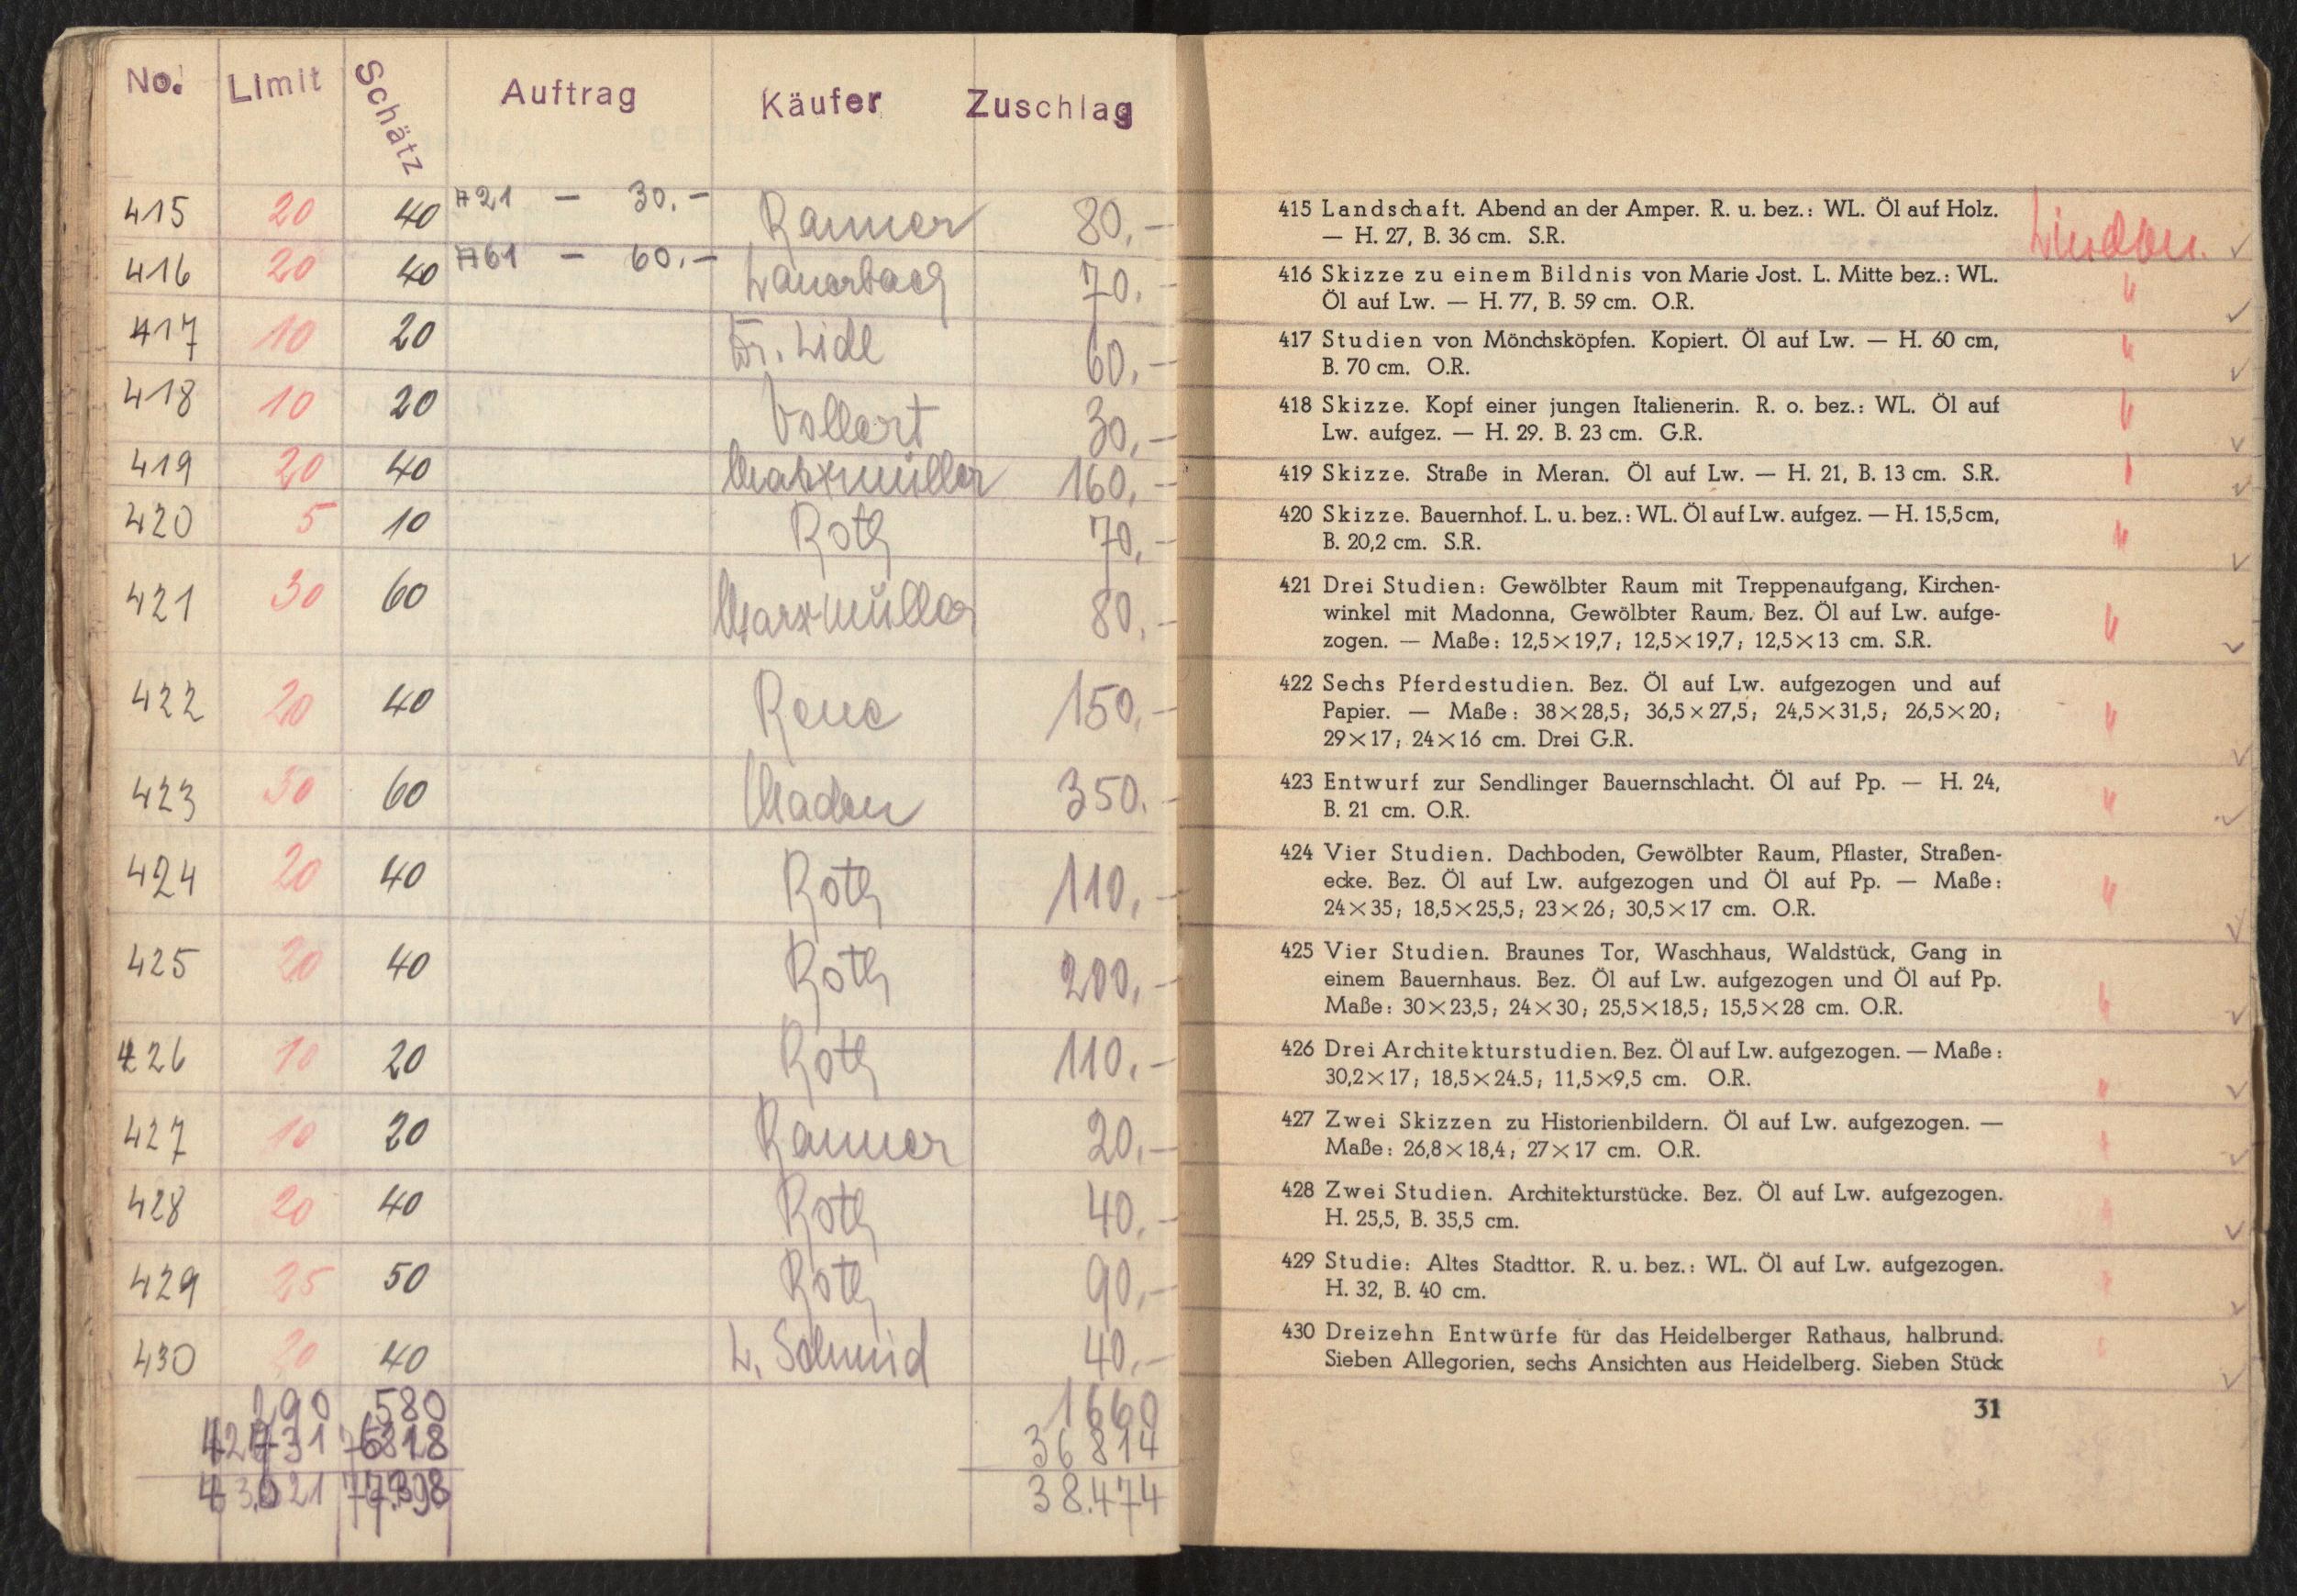 No. Limit Schätz Auftrag Käufer Zuschlag
415 20 40 A 21 – 30.– Ranner 80,–
416 20 40 A 61 – 60.– Lauerbach 70,–
417 10 20 Dr. Lidl 60,–
418 10 20 Vollert 30,–
419 20 40 Marxmüller 160,–
420 5 10 Roth 70,–
421 30 60 Marxmüller 80,–
422 20 40 Rene 150,–
423 30 60 Maden 350.–
424 20 40 Roth 110,–
425 20 40 Roth 200,–
426 10 20 Roth 110,–
427 10 20 Ranner 20,–
428 20 40 Roth 40,–
429 25 50 Roth 90,–
430 20 40 L. Schmid 40,–
290 580 1660
36 814
38.474
415 Landschaft. Abend an der Amper. R. u. bez.: WL. Öl auf Holz.
— H. 27, B. 36 cm. S.R.
Linden. ✓
416 Skizze zu einem Bildnis von Marie Jost. L. Mitte bez.: WL. "
Öl auf Lw. — H. 77, B. 59 cm. O.R. ✓
417 Studien von Mönchsköpfen. Kopiert. Öl auf Lw. — H. 60 cm, "
B. 70 cm. O.R. ✓
418 Skizze. Kopf einer jungen Italienerin. R. o. bez.: WL. Öl auf "
Lw. aufgez. — H. 29. B. 23 cm. G.R. ✓
419 Skizze. Straße in Meran. Öl auf Lw. — H. 21, B. 13 cm. S.R. " ✓
420 Skizze. Bauernhof. L. u. bez.: WL. Öl auf Lw. aufgez. — H. 15,5 cm, "
B. 20,2 cm. S.R. ✓
421 Drei Studien: Gewölbter Raum mit Treppenaufgang, Kirchen-
winkel mit Madonna, Gewölbter Raum. Bez. Öl auf Lw. aufge- "
zogen. — Maße: 12,5×19,7; 12,5×19,7; 12,5×13 cm. S.R. ✓
422 Sechs Pferdestudien. Bez. Öl auf Lw. aufgezogen und auf
Papier. — Maße: 38×28,5; 36,5×27,5; 24,5×31,5; 26,5×20; "
29×17; 24×16 cm. Drei G.R. ✓
423 Entwurf zur Sendlinger Bauernschlacht. Öl auf Pp. — H. 24, "
B. 21 cm. O.R. ✓
424 Vier Studien. Dachboden, Gewölbter Raum, Pflaster, Straßen-
ecke. Bez. Öl auf Lw. aufgezogen und Öl auf Pp. — Maße: "
24×35; 18,5×25,5; 23×26; 30,5×17 cm. O.R. ✓
425 Vier Studien. Braunes Tor, Waschhaus, Waldstück, Gang in
einem Bauernhaus. Bez. Öl auf Lw. aufgezogen und Öl auf Pp.
Maße: 30×23,5; 24×30; 25,5×18,5; 15,5×28 cm. O.R. " ✓
426 Drei Architekturstudien. Bez. Öl auf Lw. aufgezogen. — Maße:
30,2×17; 18,5×24.5; 11,5×9,5 cm. O.R. " ✓
427 Zwei Skizzen zu Historienbildern. Öl auf Lw. aufgezogen. —
Maße: 26,8×18,4; 27×17 cm. O.R. " ✓
428 Zwei Studien. Architekturstücke. Bez. Öl auf Lw. aufgezogen.
H. 25,5, B. 35,5 cm. " ✓
429 Studie: Altes Stadttor. R. u. bez.: WL. Öl auf Lw. aufgezogen.
H. 32, B. 40 cm. " ✓
430 Dreizehn Entwürfe für das Heidelberger Rathaus, halbrund. "
Sieben Allegorien, sechs Ansichten aus Heidelberg. Sieben Stück ✓
31